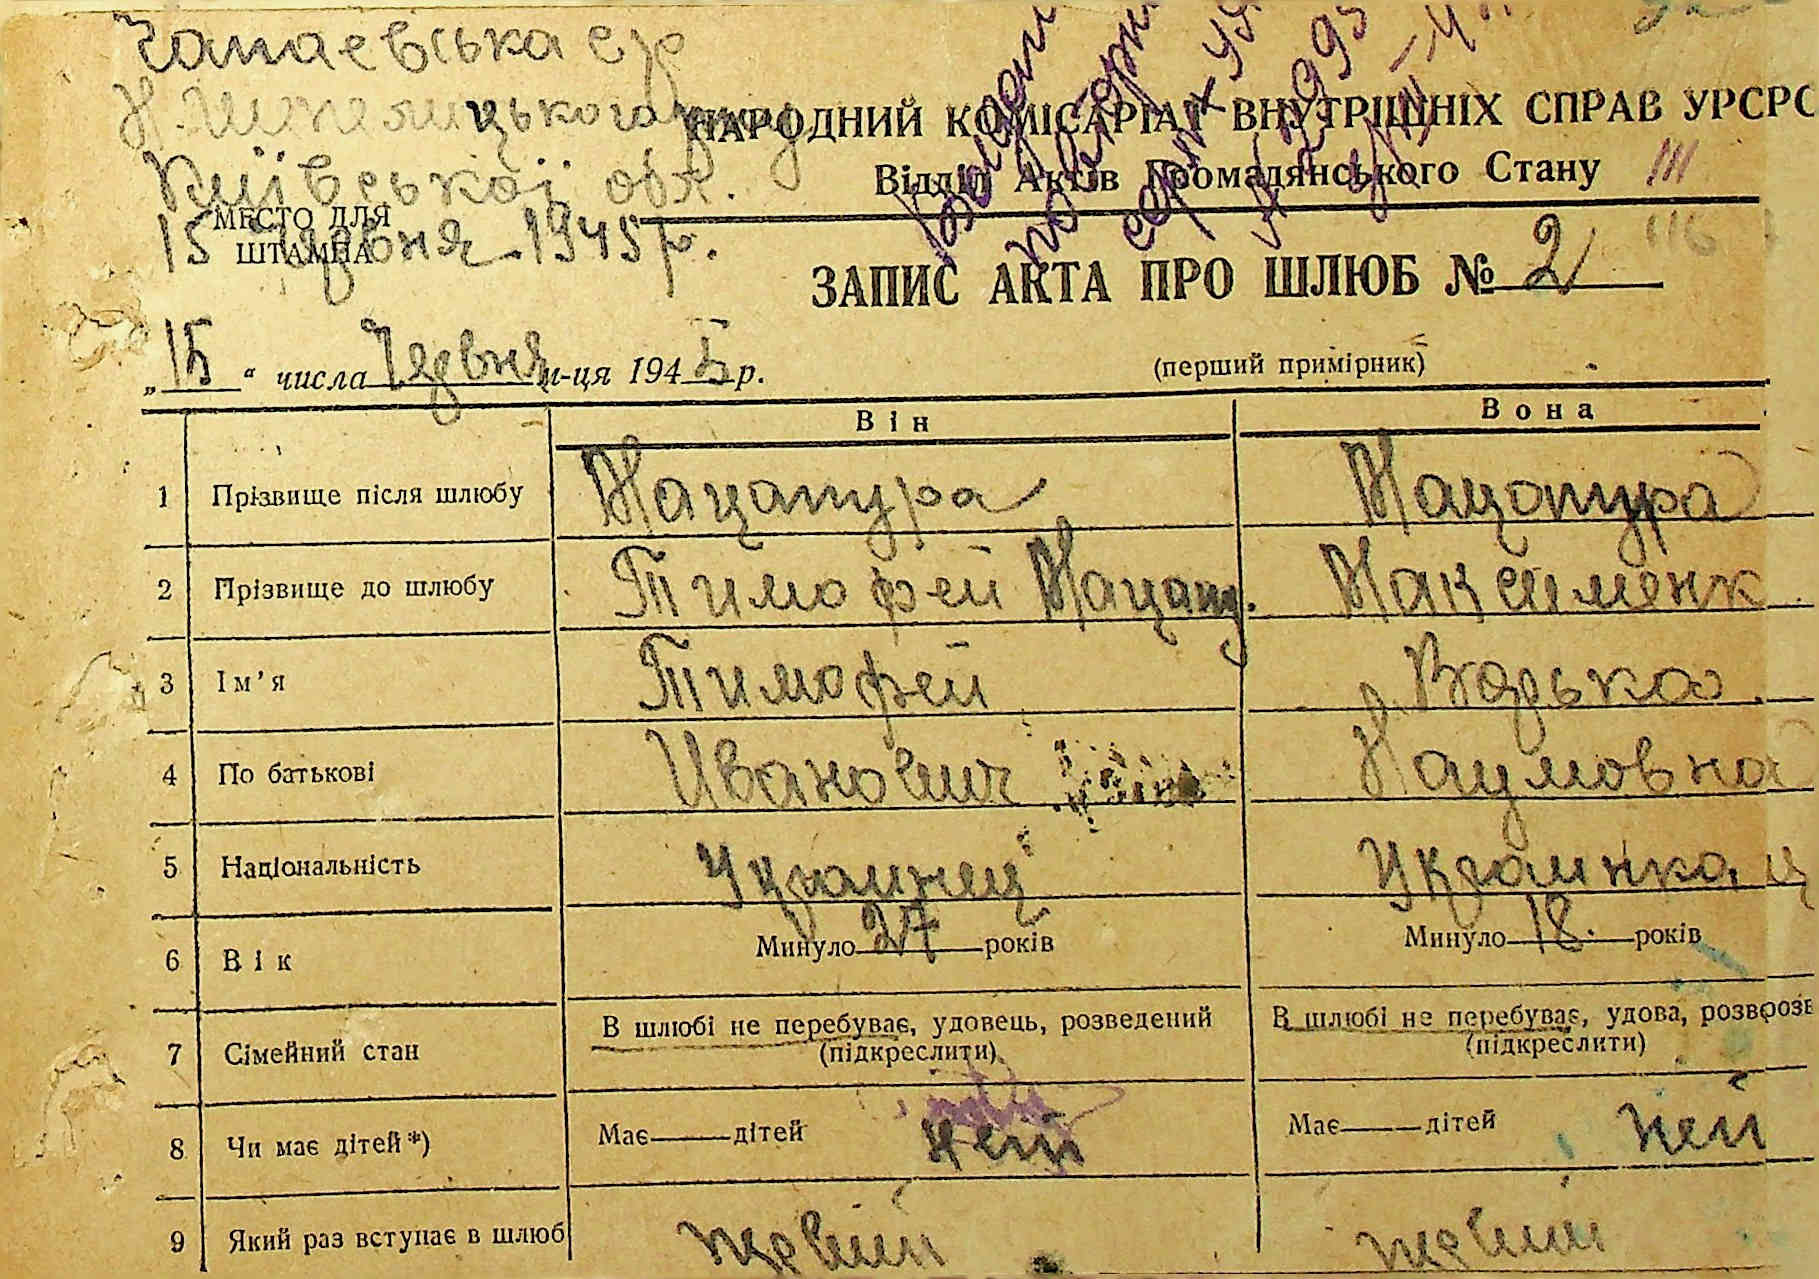 Чапаевська с/р
Н. Шепелицького р-ну
Київської обл.
15 червня 1945 р.
Видано
повторн
НАРОДНИЙ КОМІСАРІАТ ВНУТРІШНІХ СПРАВ УРСР
Відділ Актів Громадянського Стану
III
МЕСТО ДЛЯ
ШТАМПА
116
ЗАПИС АКТА ПРО ШЛЮБ № 2
„15“ числа Червня м-ця 1945 р.
(перший примірник)
Він Вона
1 Прізвище після шлюбу Мацапура Мацопура
2 Прізвище до шлюбу Тимофей Мацапу. Максименк
3 Ім’я Тимофей Варька
4 По батькові Иванович Наумовна
5 Національність Украинец Украинка
6 Вік Минуло 27 років Минуло 18 років
7 Сімейний стан В шлюбі не перебуває, удовець, розведений В шлюбі не перебуває, удова, розв
(підкреслити) (підкреслити)
8 Чи має дітей*) Має дітей нет Має дітей нет
9 Який раз вступає в шлюб первий первий